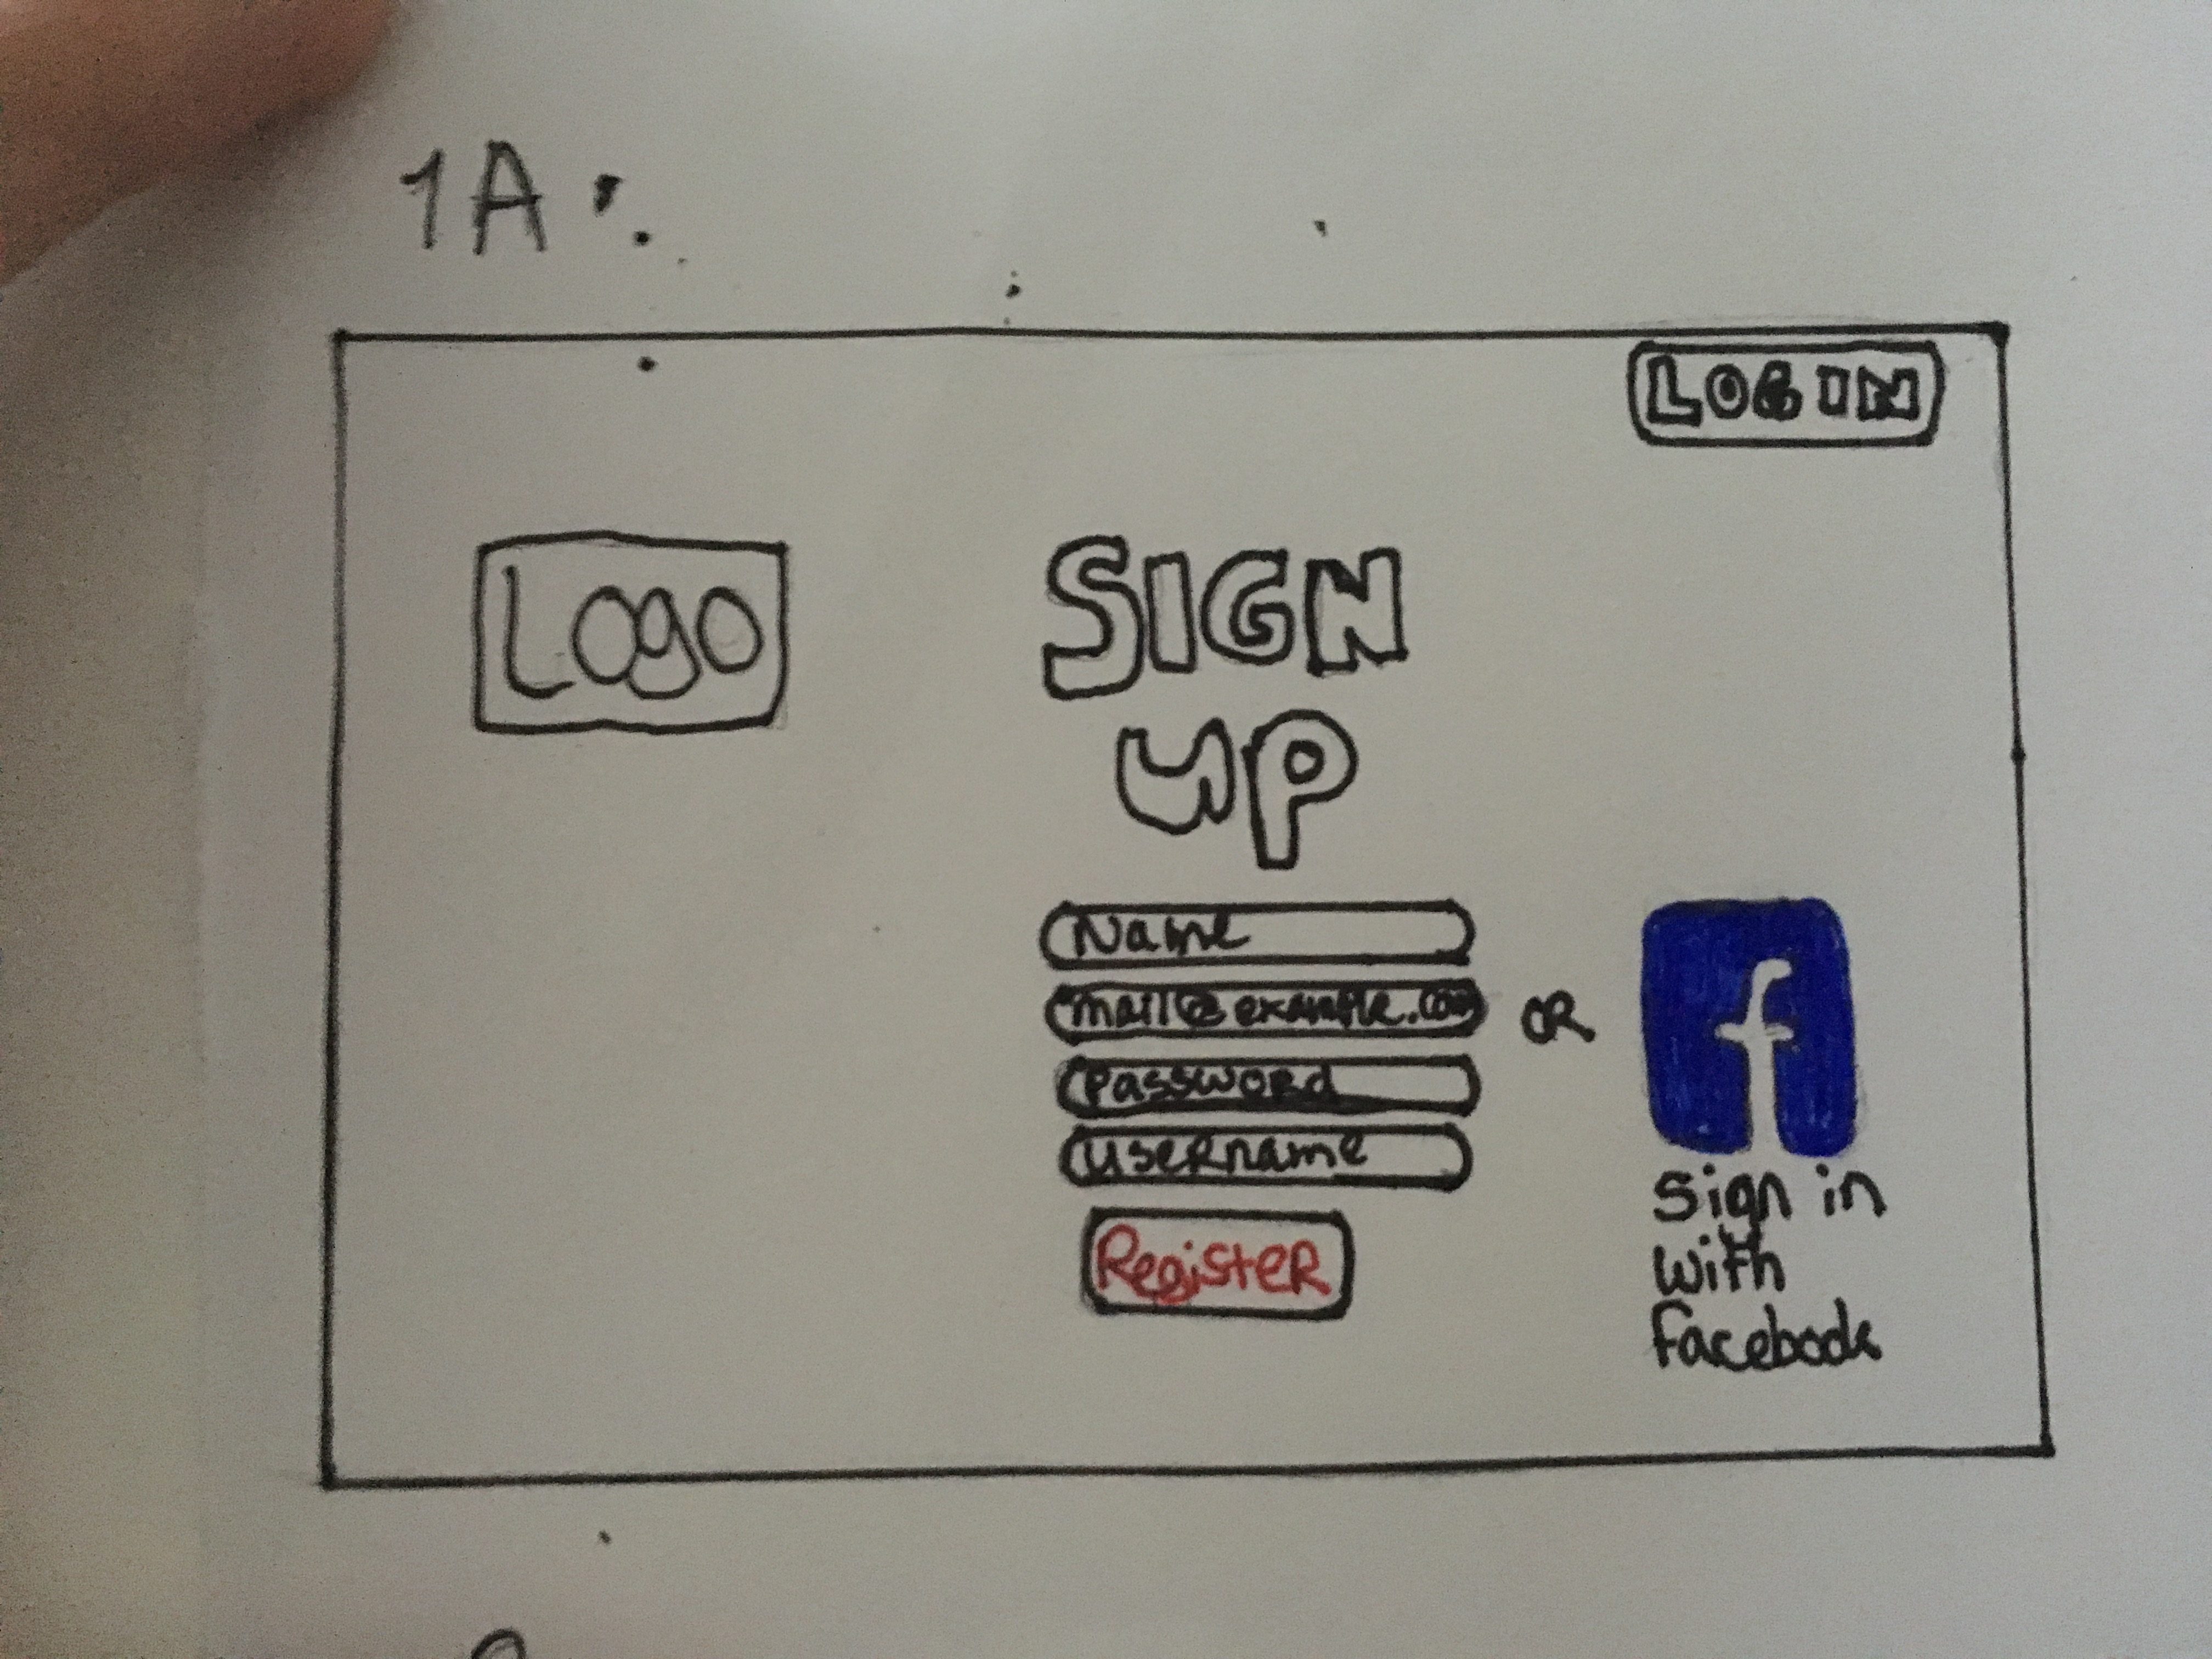 1A:
LOGIN
Logo
SIGN
UP
Name
mail@example.com
Password
Username
Register
OR
f
Sign in
with
facebook